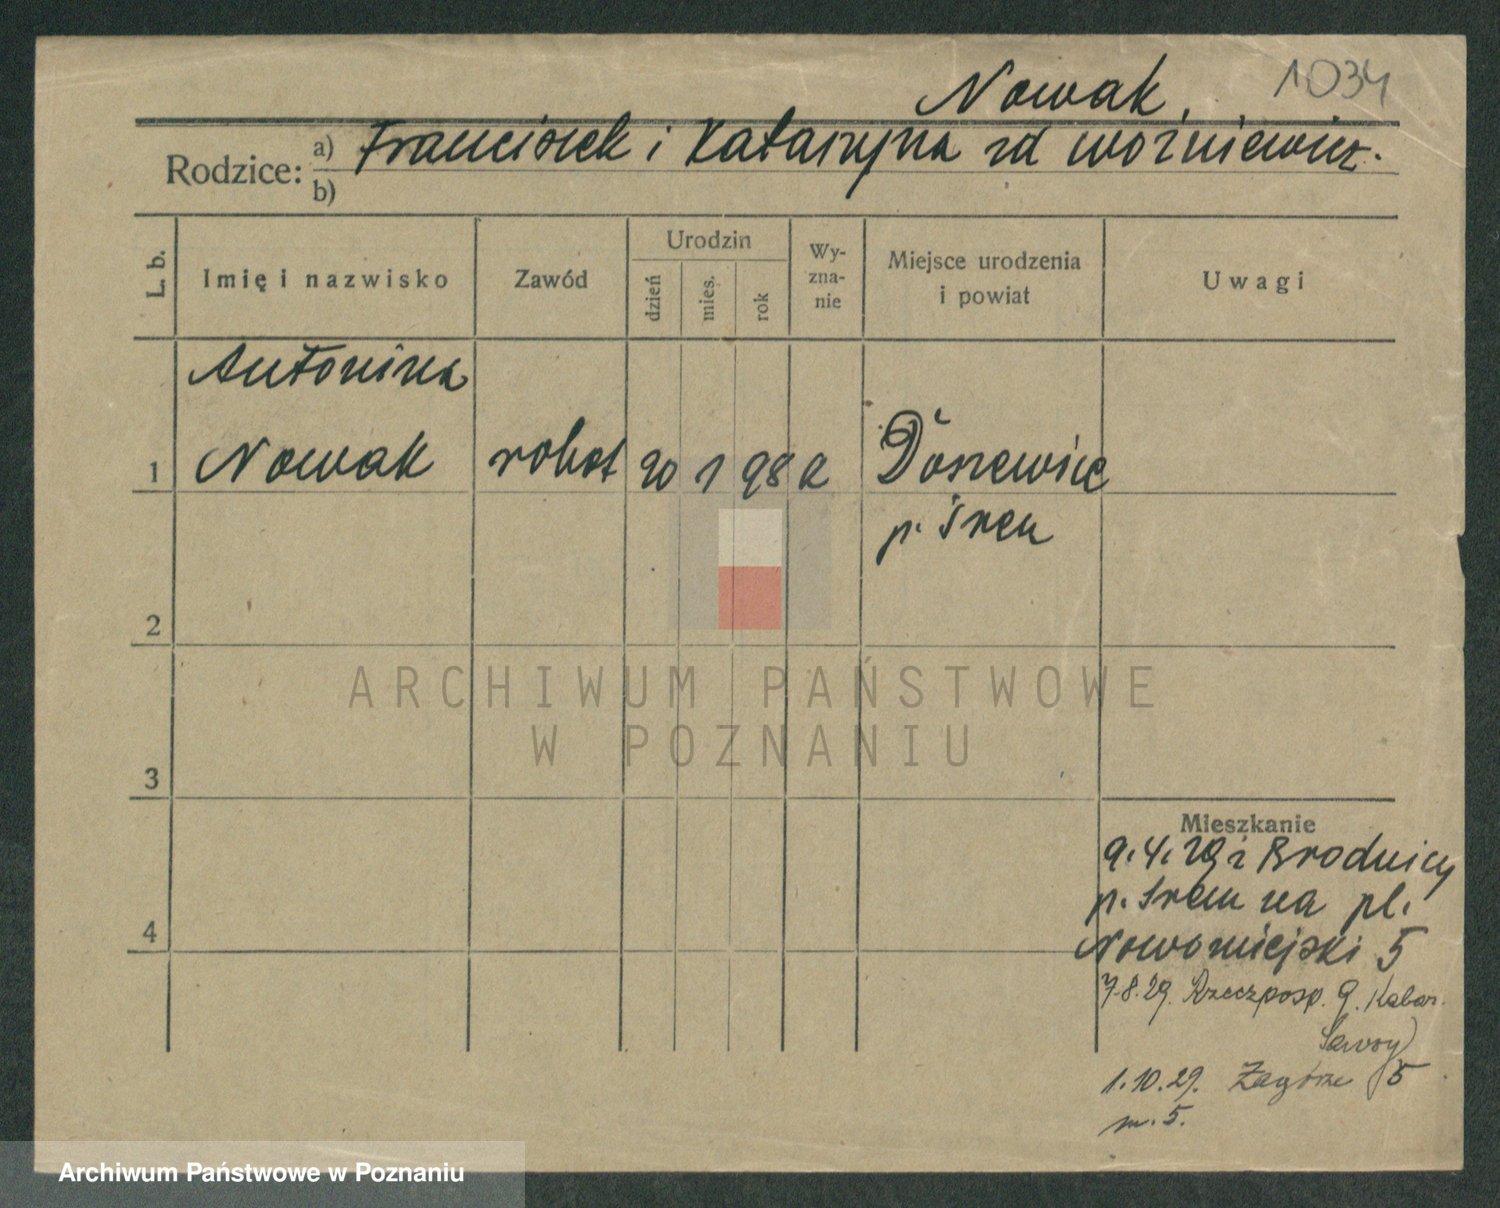 Nowak. 1034
Rodzice: a) Franciszek i Katarzyna zd Woźniewicz.
b)
L. b. Imię i nazwisko Zawód Urodzin dzień mies. rok Wy-zna-nie Miejsce urodzenia i powiat Uwagi
Antonina
1 Nowak robot 20 1 98 k
p. Śrem
2
ARCHIWUM PAŃSTWOWE
W POZNANIU
3
Mieszkanie
9.4.29 z Brodnicy
p. Śrem na pl.
4 Nowomiejski 5
7.8.29. Rzeczposp. 9. Kabar.
Savoy
1.10.29. Zagórze 5
m. 5.
Archiwum Państwowe w Poznaniu